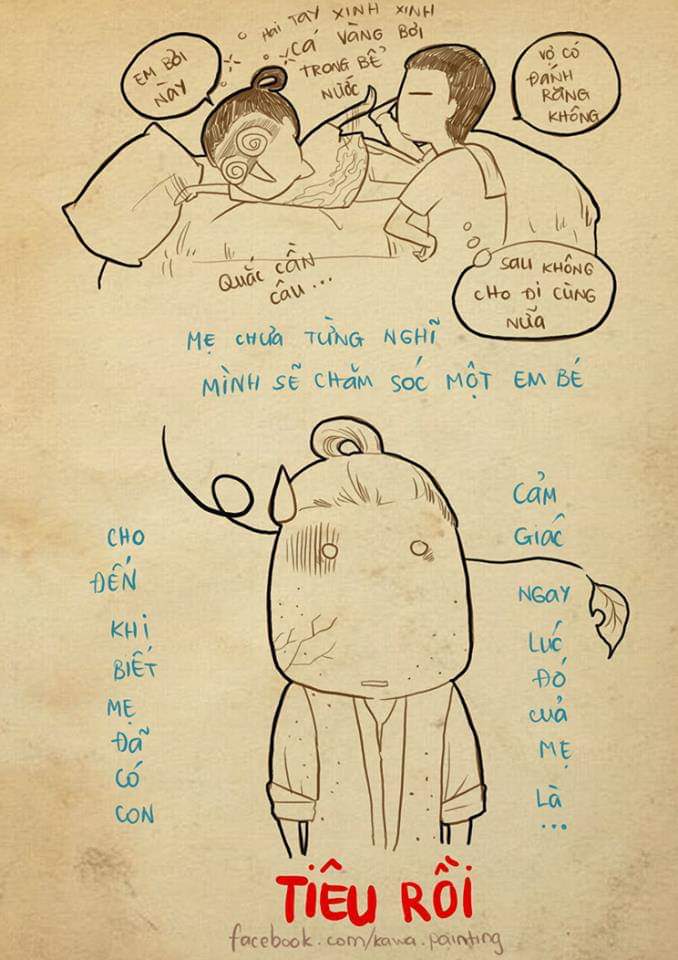 EM BƠI
NÀY
HAI TAY XINH XINH
CÁ VÀNG BƠI
TRONG BỂ
NƯỚC
VỢ CÓ
ĐÁNH
RĂNG
KHÔNG
QUẮC CẦN
CÂU...
SAU KHÔNG
CHO ĐI CÙNG
NỮA
MẸ CHƯA TỪNG NGHĨ
MÌNH SẼ CHĂM SÓC MỘT EM BÉ
CHO
ĐẾN
KHI
BIẾT
MẸ
ĐÃ
CÓ
CON
CẢM
GIÁC
NGAY
LÚC
ĐÓ
CUẢ
MẸ
LÀ
...
TIÊU RỒI
facebook.com/kawa.painting